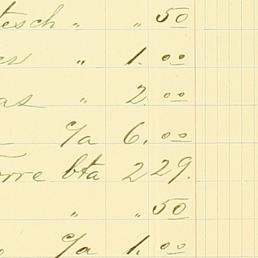 tesch " " 50
es " 1. 00
as " 2. 00
c/a 6. 00
orre bta 2 29.
" " 50
c/a 1. 00